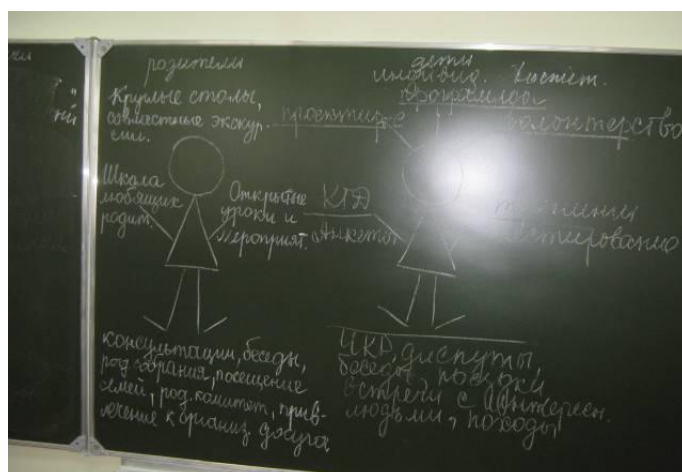 родители
Круглые столы,
совместные экскур
сии.
Школа
любящих
родит.
Открытые
уроки и
мероприят.
консультации, беседы,
род. собрания, посещение
семей, род. комитет, прив-
лечение к организ досуга
дети
индивид.
программы
волонтерство
КТД
Анкеты
тестирование
диспуты
беседы, 
встречи с интересн.
людьми, походы